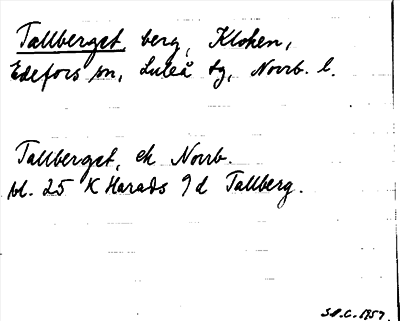 Tallberget, berg, Kloken,
Edefors sn, Luleå tg, Norrb. l.
Tallberget, ek Norrb.
bl. 25 K Harads 9 d Tallberg.
S.P.C. 1957.